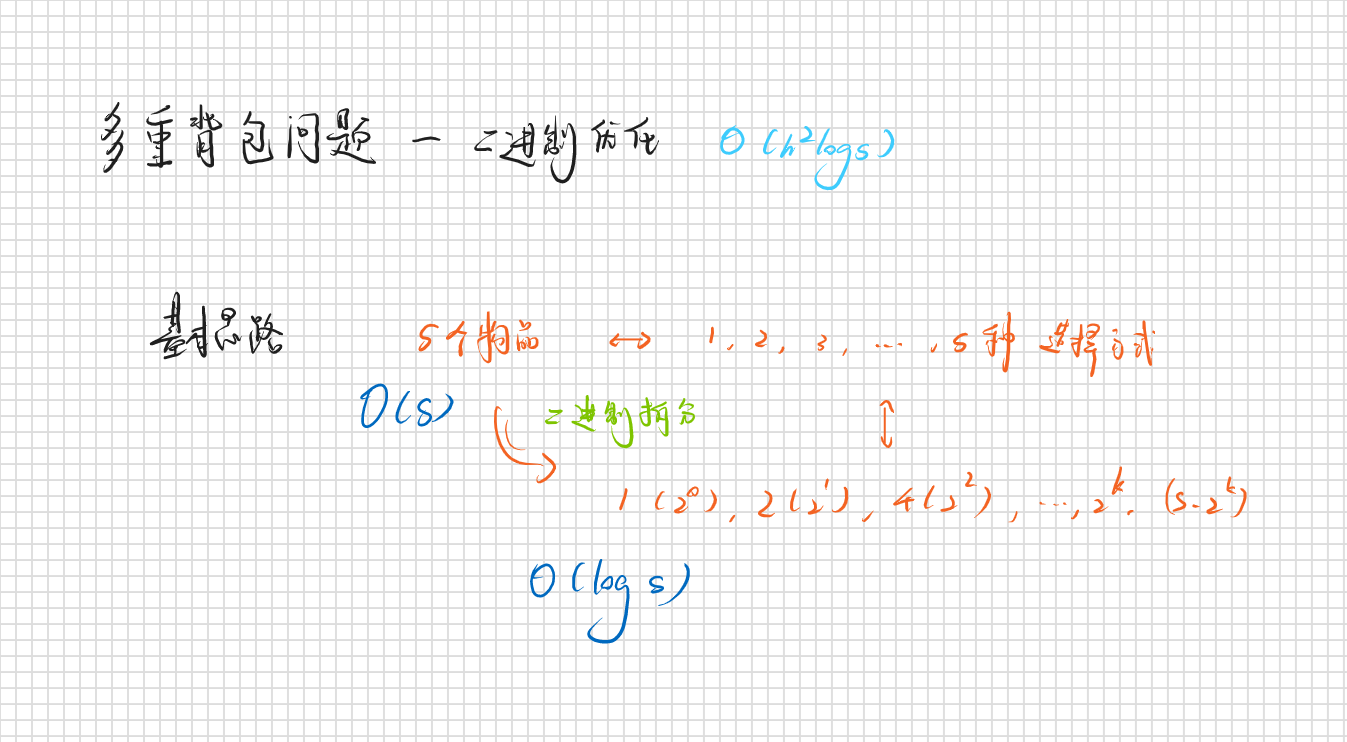 多重背包问题 — 二进制优化 O(n²logs)
基本思路 s个物品 ↔ 1, 2, 3, ..., s种 选择方式
O(s) 二进制拆分 ↕
1(2⁰), 2(2¹), 4(2²), ..., 2ᵏ, (s-2ᵏ)
O(log s)